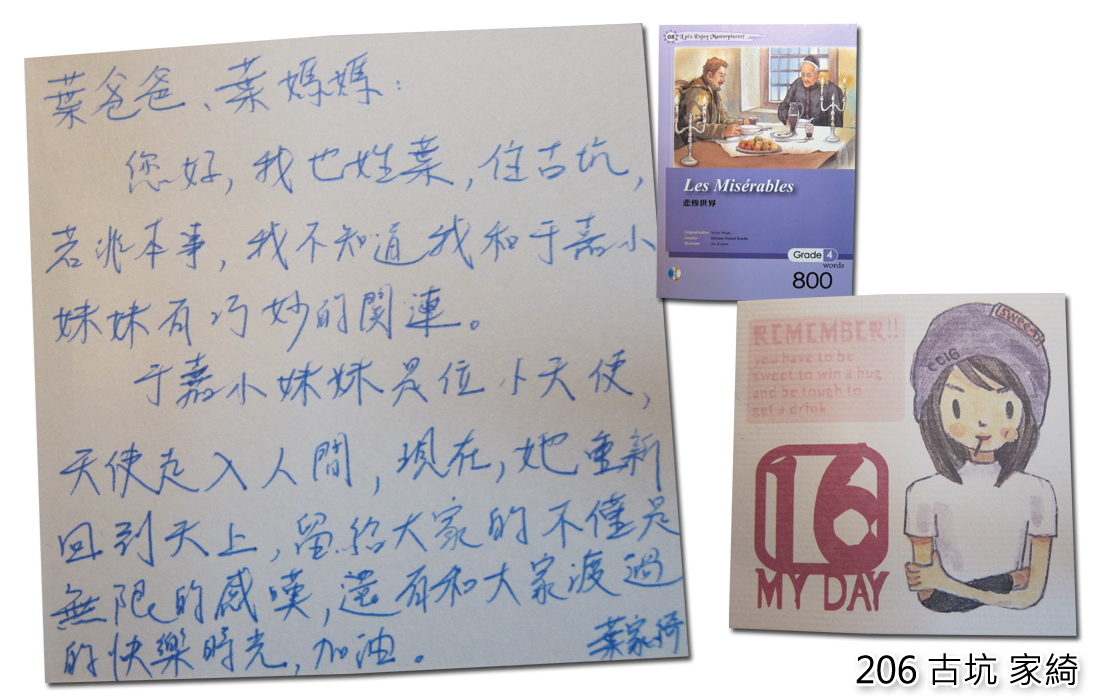 葉爸爸、葉媽媽：
您好，我也姓葉，住古坑，
若非本事，我不知道我和于嘉小
妹妹有巧妙的関連。
于嘉小妹妹是位小天使，
天使走入人間，現在，她重新
回到天上，留給大家的不僅是
無限的感嘆，還有和大家渡過
的快樂時光，加油。
葉家綺
08 Let's Enjoy Masterpieces!
Les Misérables
悲慘世界
Grade 4
words
800
REMEMBER!!
you have to be
sweet to win a hug
and be tough to
get a drink
CC16
16
MY DAY
206 古坑 家綺